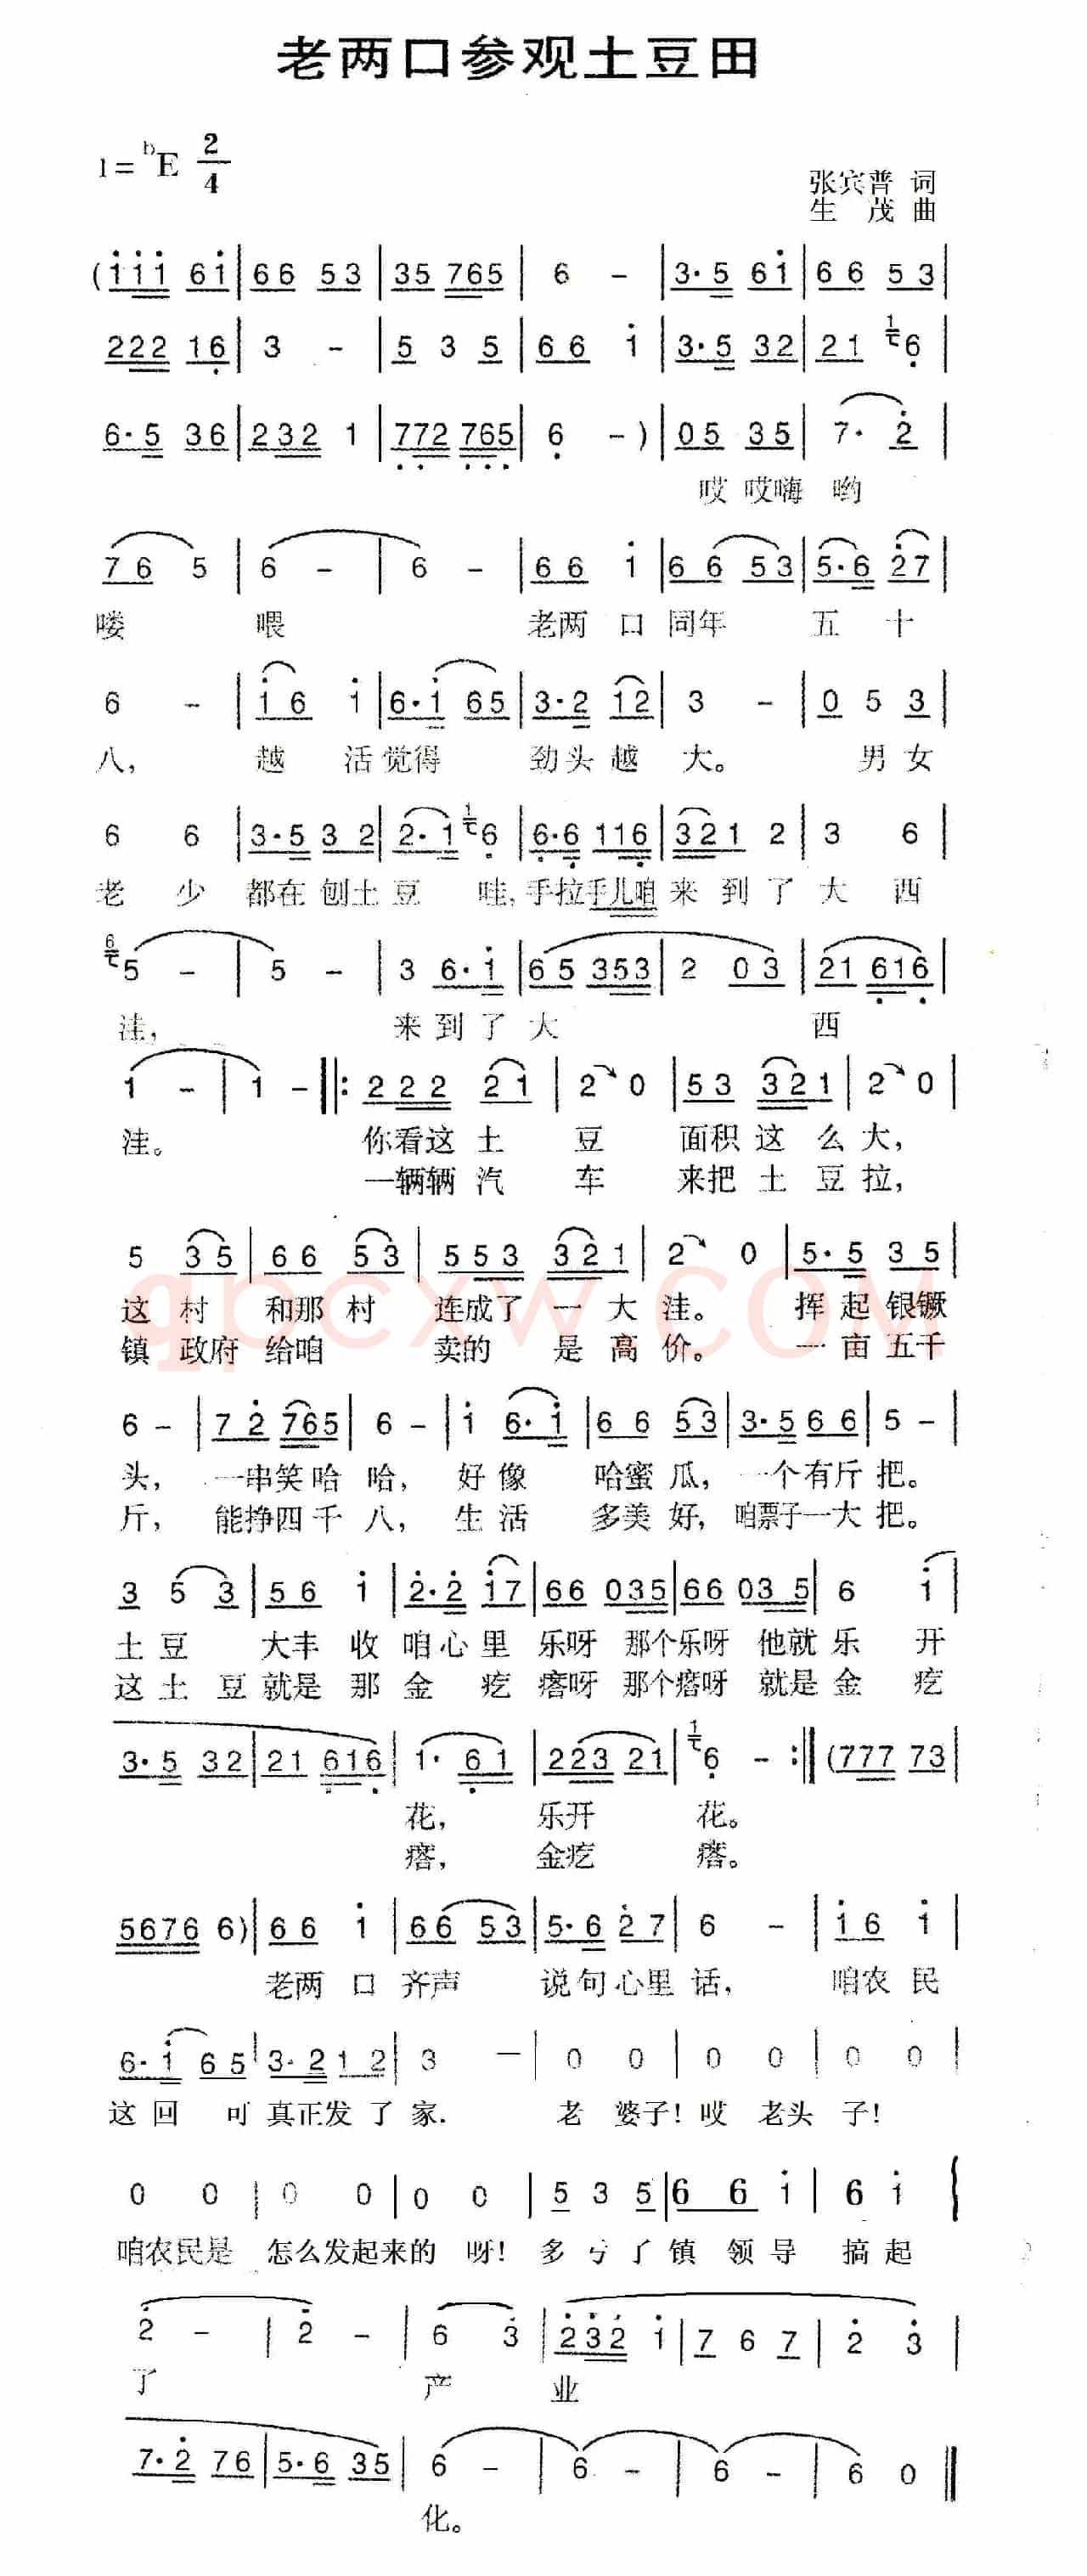 老两口参观土豆田
1=ᵇE 2/4
张宾普 词
生 茂 曲
(i̇i̇i̇ 6i̇|66 53|35 765|6 -|3·5 6i̇|66 53|
222 16̣|3 -|5 3 5|66 i̇|3·5 32|21 6̣|
6·5 36|232 1|7̣7̣2 7̣6̣5̣|6̣ -)|05 35|7· 2̇|
哎 哎嗨 哟
76 5|6 -|6 -|66 i̇|66 53|5·6 2̇7|
喽 喂 老两 口 同年 五 十
6 -|i̇6 i̇|6·i̇ 65|3·2 12|3 -|0 5 3|
八, 越 活 觉得 劲头 越 大。 男 女
6 6|3·5 32|2·1 6̣|6̣·6̣ 116̣|321 2|3 6|
老 少 都在 刨土 豆 哇, 手拉手儿咱 来 到 了 大 西
5 -|5 -|3 6·i̇|65 353|2 03|21 6̣16̣|
洼, 来 到 了 大 西
1 -|1 -‖:222 21|2 0|53 321|2 0|
洼。 你看这 土 豆 面积 这 么 大,
一辆辆 汽 车 来把 土 豆 拉,
5 35|66 53|553 321|2 0|5·5 35|
这 村 和那 村 连成了 一 大 洼。 挥 起 银镢
镇 政府 给咱 卖的 是 高 价。 一 亩 五千
6 -|72̇ 765|6 -|i̇ 6·i̇|66 53|3·5 66|5 -|
头, 一串笑 哈 哈, 好 像 哈蜜 瓜, 一个有斤 把。
斤, 能挣四 千 八, 生 活 多美 好, 咱票子一大 把。
3 5 3|56 i̇|2̇·2̇ i̇7|66 035|66 035|6 i̇|
土 豆 大丰 收 咱 心 里 乐呀 那个乐呀 他就 乐 开
这 土 豆 就是 那 金 疙 瘩呀 那个瘩呀 就是 金 疙
3·5 32|21 6̣16̣|1· 6̣1|223 21|6̣ -:‖(777 73|
花, 乐开 花。
瘩, 金疙 瘩。
5676 6)|66 i̇|66 53|5·6 2̇7|6 -|i̇6 i̇|
老两 口 齐声 说句心里 话, 咱农 民
6·i̇ 65|3·2 12|3 -|0 0|0 0|0 0|
这 回 可 真正发 了 家. 老 婆子! 哎 老头 子!
0 0|0 0|0 0|5 3 5|66 i̇|6 i̇|
咱农民是 怎么发起来的 呀! 多 亏 了 镇 领 导 搞 起
2̇ -|2̇ -|6 3̇|2̇3̇2̇ i̇|7 6 7|2̇ 3̇|
了 产 业
7·2̇ 76|5·6 35|6 -|6 -|6 -|6 0‖
化。
qpcxw.COM